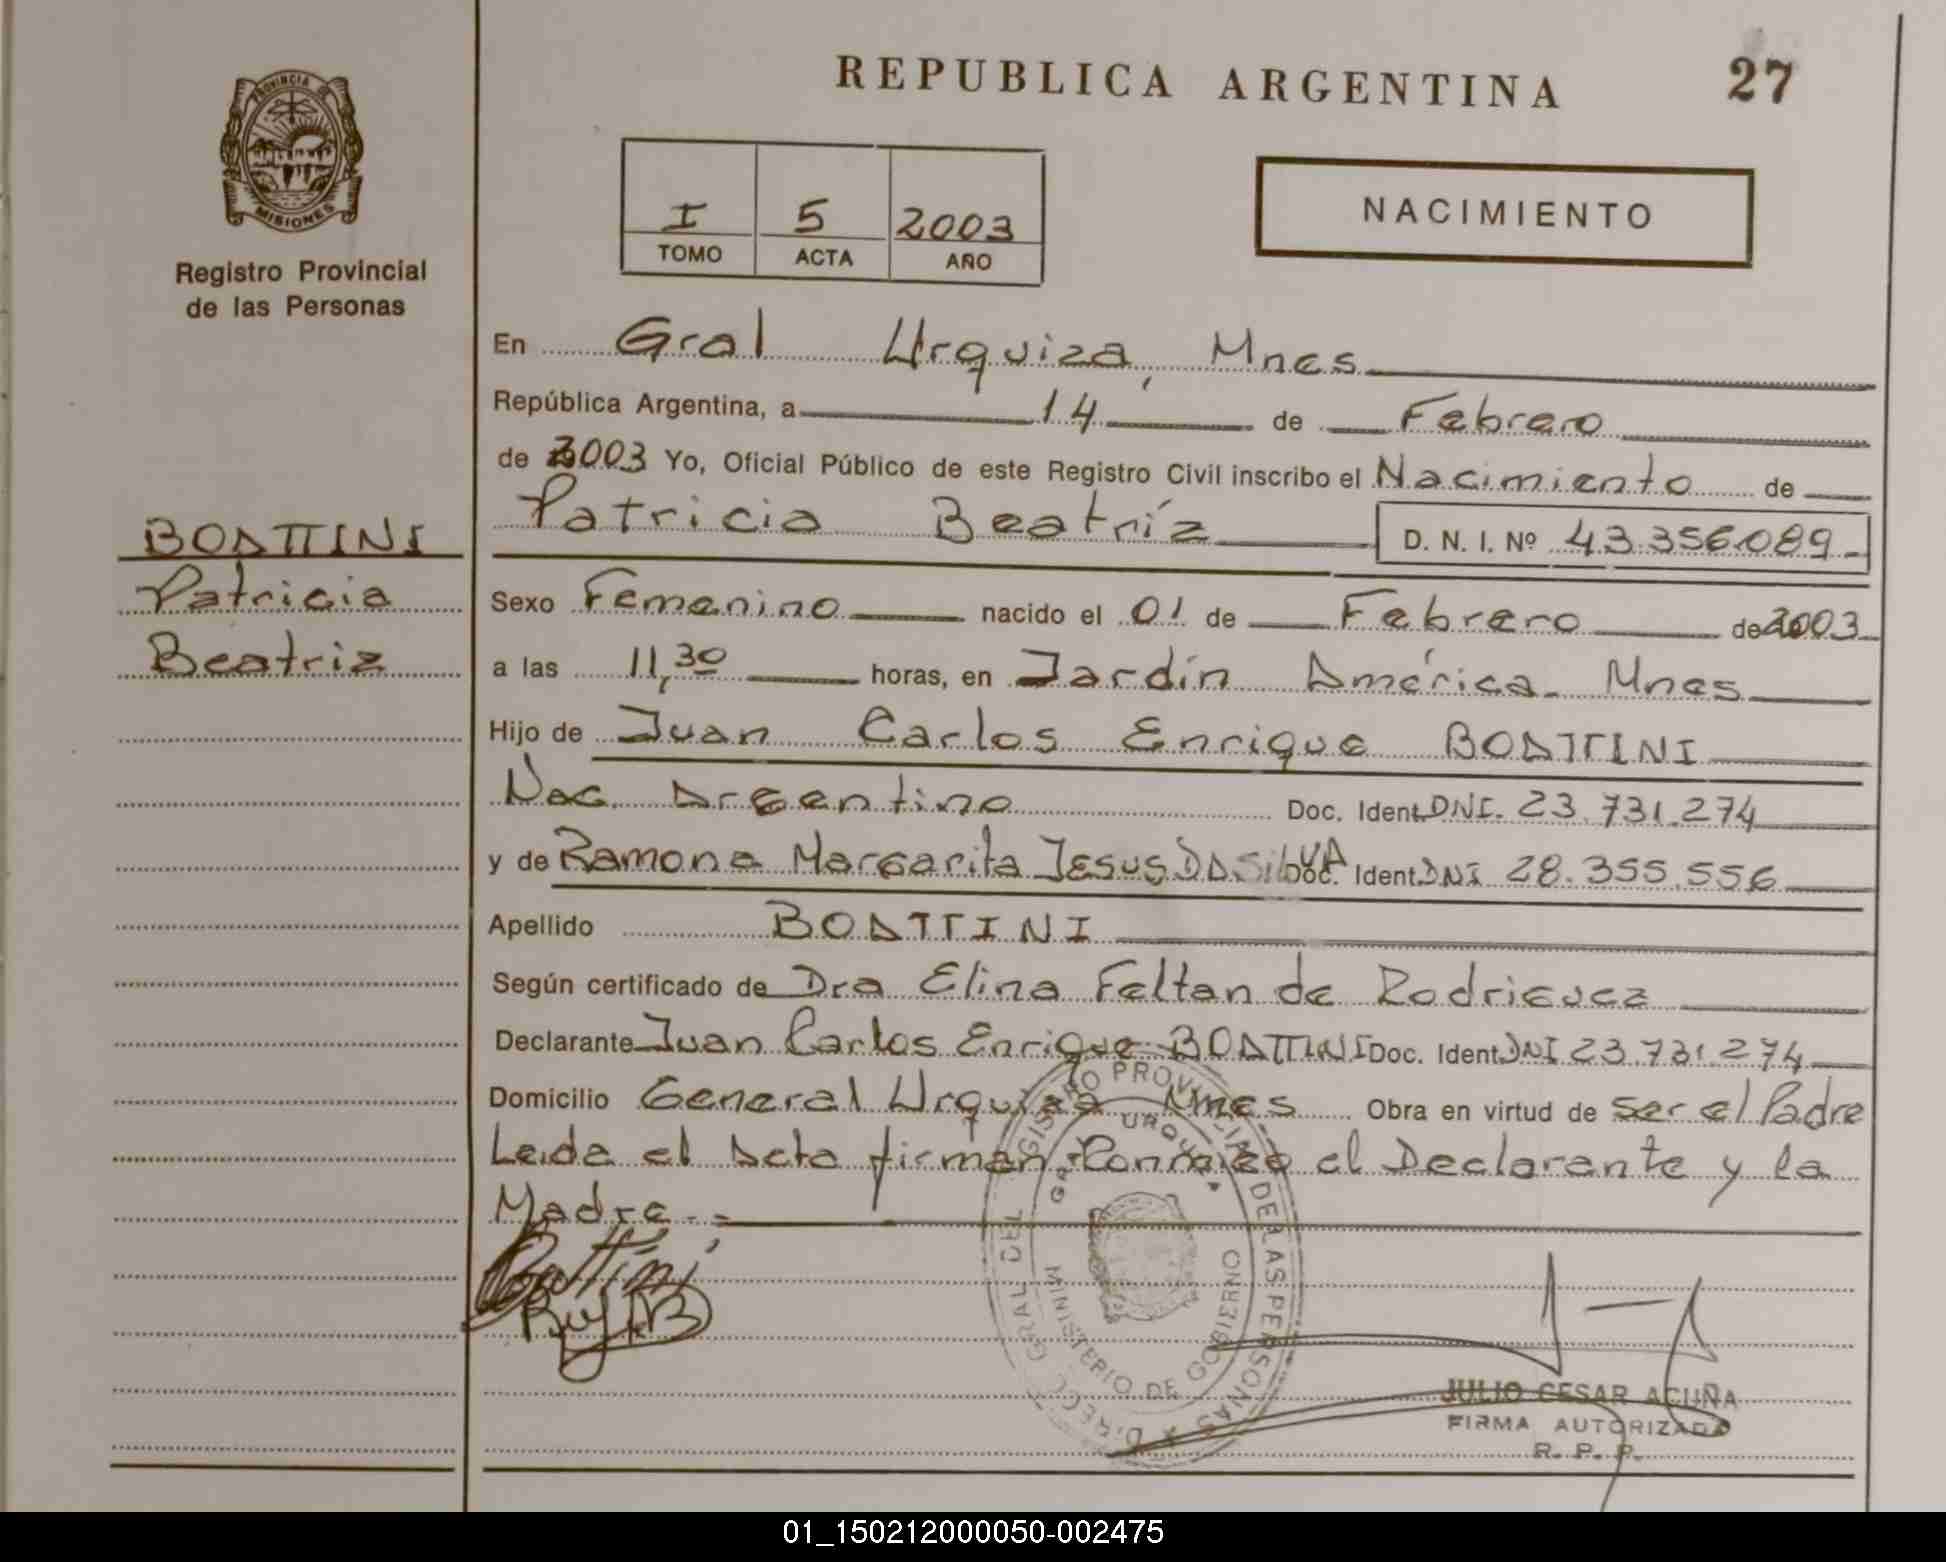 REPUBLICA ARGENTINA
27
PROVINCIA DE
MISIONES
Registro Provincial
de las Personas
I 5 2003
TOMO ACTA AÑO
NACIMIENTO
En Gral Urquiza, Mnes
República Argentina, a 14 de Febrero
de 2003 Yo, Oficial Público de este Registro Civil inscribo el Nacimiento de
Patricia Beatríz D. N. I. Nº 43.356.089
BOATTINI
Patricia
Beatriz
Sexo Femenino nacido el 01 de Febrero de 2003
a las 11,30 horas, en Jardín América Mnes
Hijo de Juan Carlos Enrique BOATTINI
Nac. Argentino Doc. Ident. DNI. 23.731.274
y de Ramona Margarita Jesus DA SILVA Doc. Ident. DNI 28.355.556
Apellido BOATTINI
Según certificado de Dra Elina Feltan de Rodriguez
Declarante Juan Carlos Enrique BOATTINI Doc. Ident. DNI 23.731.274
Domicilio General Urquiza Mnes Obra en virtud de ser el Padre
Leida el Acta firman Conmigo el Declarante y la
Madre.
Boattini
REGISTRO PROVINCIAL DE LAS PERSONAS
DIRECC. GRAL DEL
GRAL URQUIZA
MINISTERIO DE GOBIERNO
JULIO CESAR ACUÑA
FIRMA AUTORIZADA
R. P. P.
01_150212000050-002475